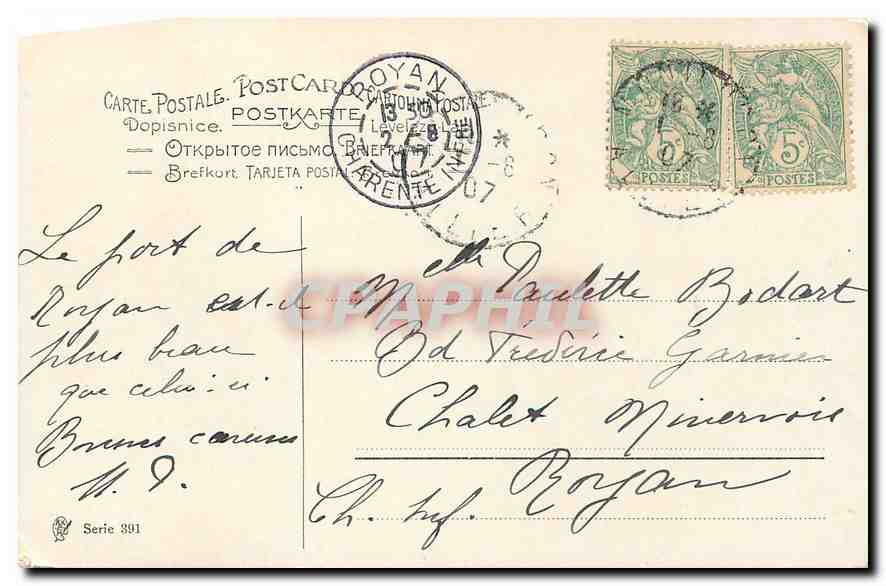 CARTE POSTALE. POST CARD
POSTKARTE CARTOLINA POSTALE
Dopisnice. Levelező-Lap
— ОТКРЫТОЕ ПИСЬМО. BRIEFKAART
— Brefkort. TARJETA POSTAL.
ROYAN
13 30
2 - 8
07
CHARENTE INFRE
* 
-8
07
5c 5c
POSTES POSTES
Le port de
Royan est-il
plus beau
que celui-ci
Bonnes caresses
Melle Paulette Bodart
Bd Frédéric Garnier
Chalet Minervois
Royan
Ch. Inf.
CPAPHIL
Serie 391